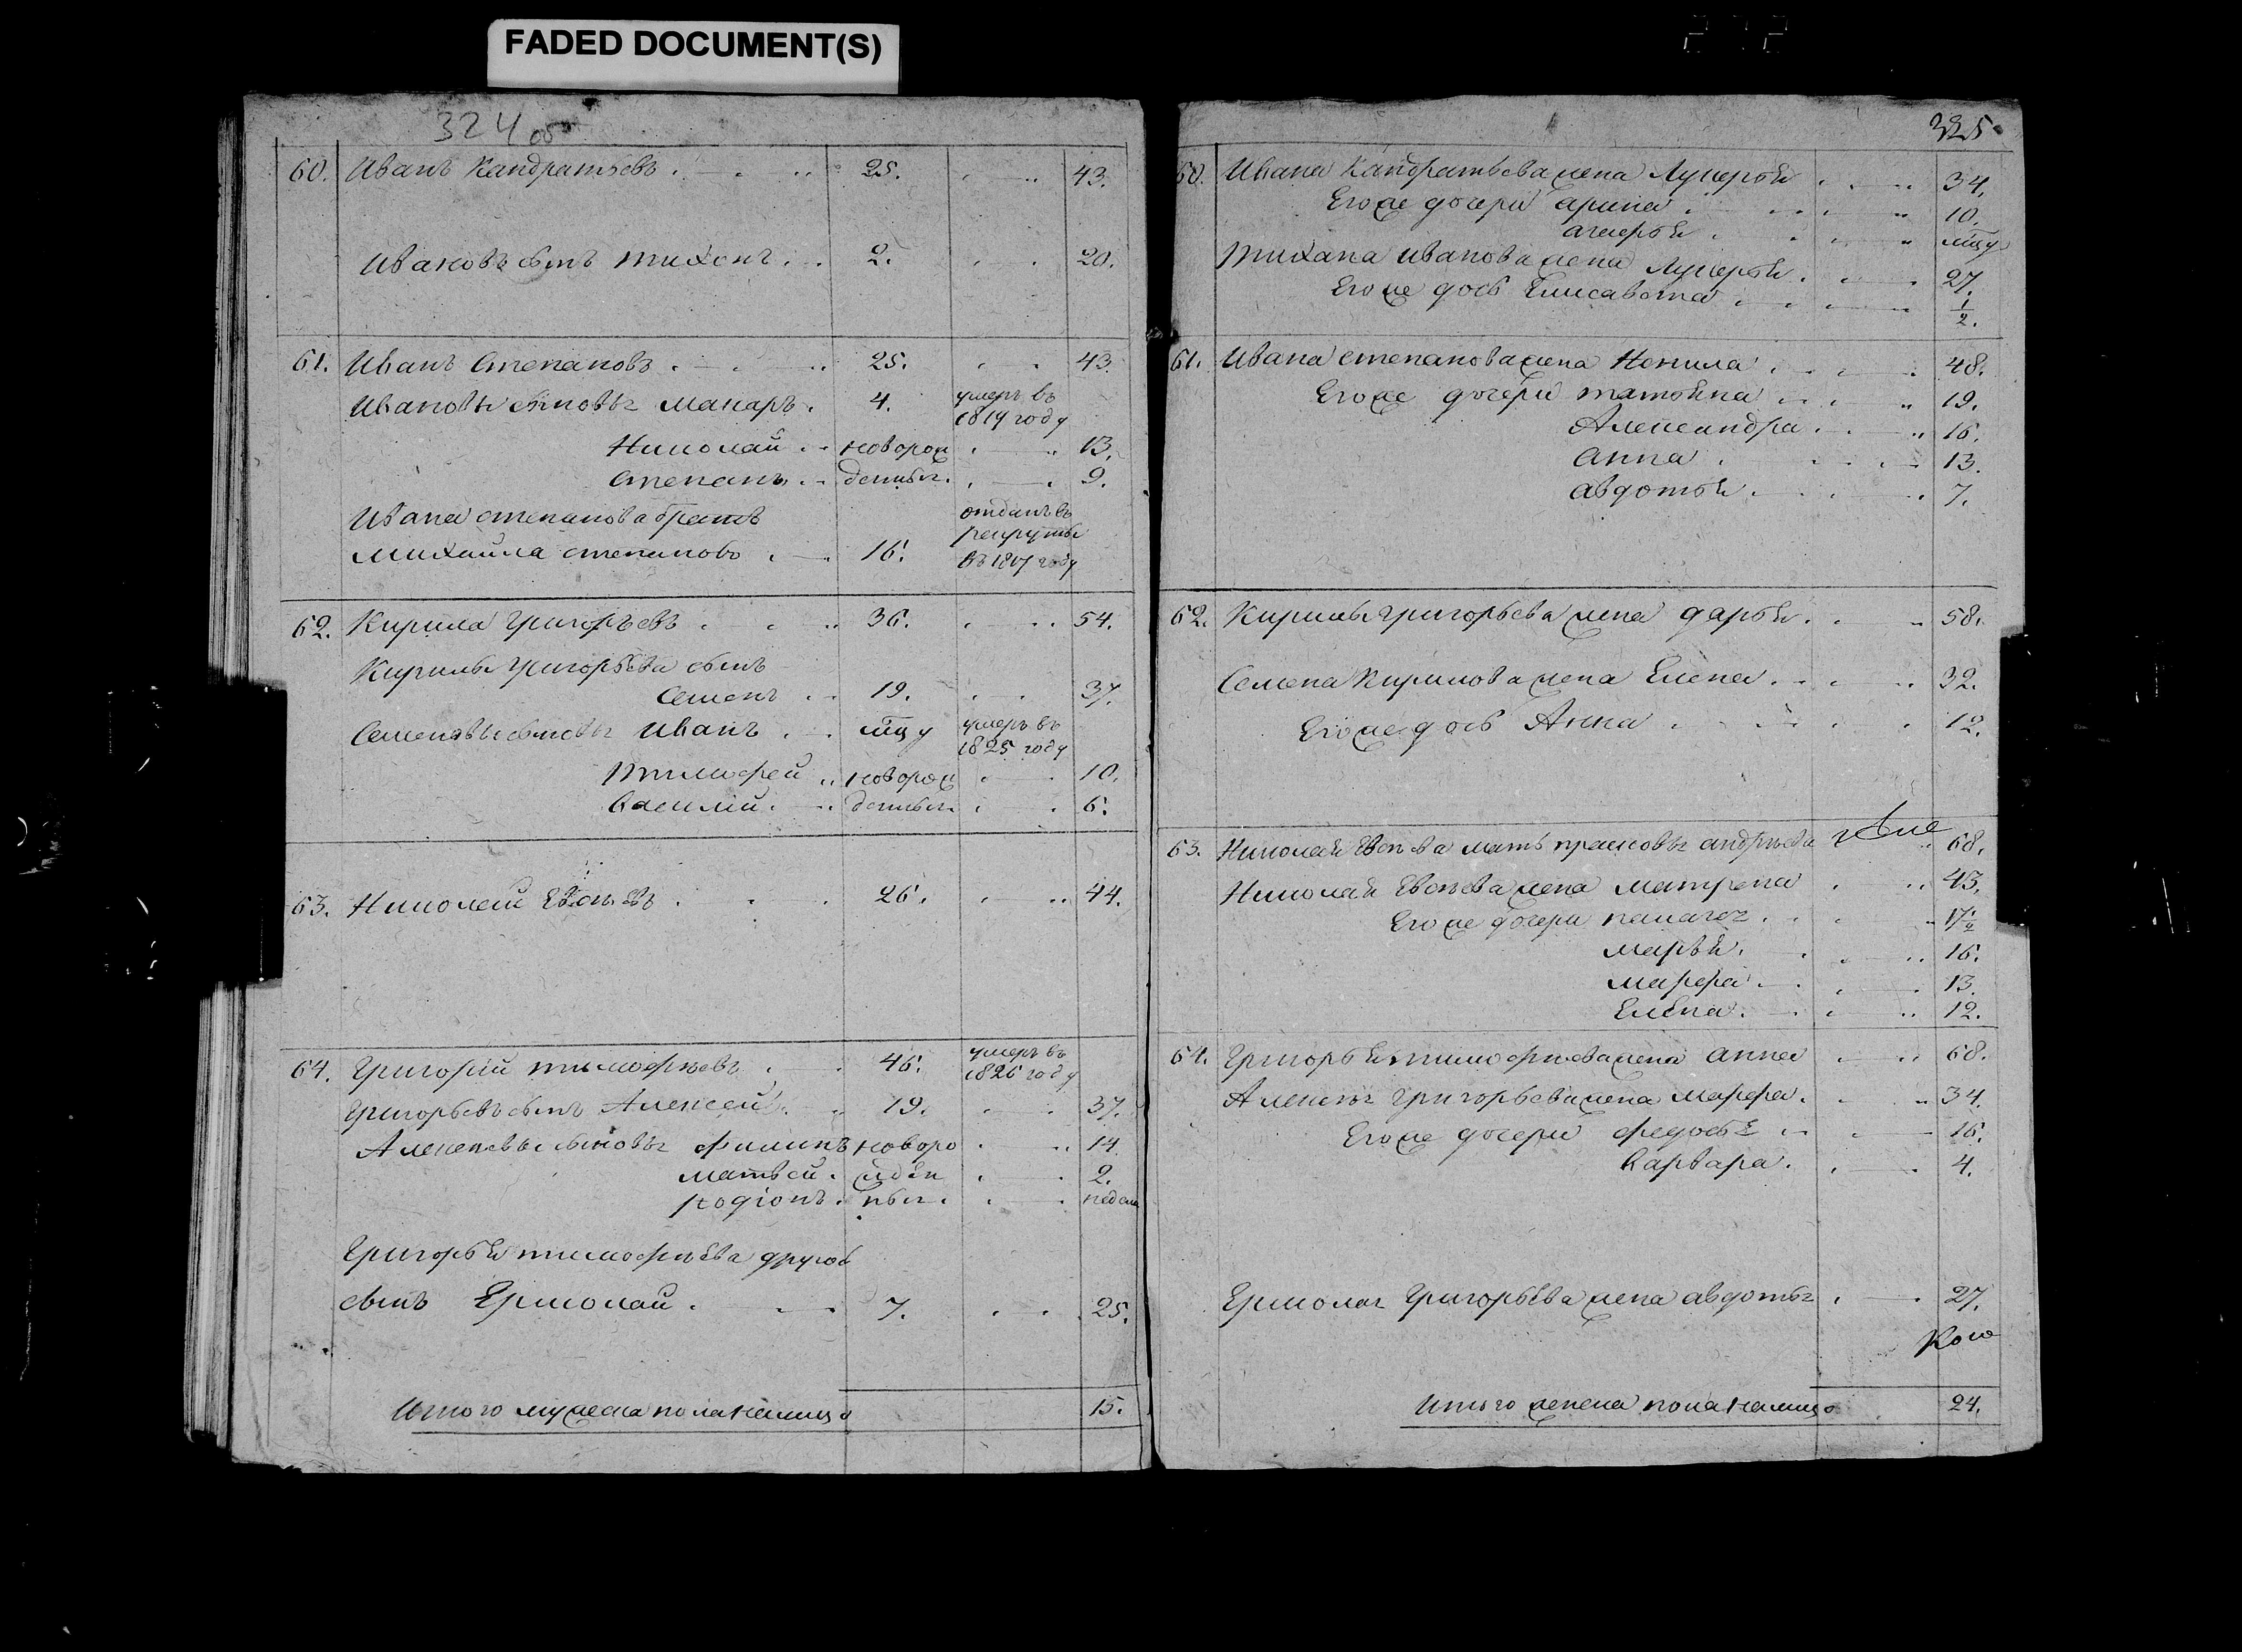 FADED DOCUMENT(S)
324 об
60. Иванъ Кандратьевъ 25. 43.
Ивановъ сынъ Тихонъ 2. 20.
61. Иванъ Степановъ 25. 43.
Ивановы сыновья Макаръ 4. умеръ въ
1819 году
Николай новорож 13.
Степанъ денные 9.
Ивана Степанова братъ отданъ въ
рекруты
Михайла Степановъ 16. въ году
62. Кирила Григорьевъ 36. 54.
Кирилы Григорьева сынъ
Семенъ 19. 37.
Семеновы сыновья Иванъ мцу умеръ въ
1825 году
Тимофей новорож 10.
Василій денные 6.
63. Николай 26. 44.
64. Григорій Тимофеевъ 46. умеръ въ
1826 году
Григорьевъ сынъ Алексей 19. 37.
Алексеевы сыновья Филипъ новоро 14.
Матвей жден 2.
Родіонъ ные недели
Григорья Тимофеева другой
сынъ Ермолай 7. 25.
Итого мужеска пола налицо 15.
325
60. Ивана Кандратьева жена Лукерья 34.
Его же дочери Арина 10.
мцу
Тихана Иванова жена Лукерья 27.
Его же дочь Елисавета 1/2.
61. Ивана Степанова жена Ненила 48.
Его же дочери Татьяна 19.
Александра 16.
Анна 13.
Авдотья 7.
62. Кирилы Григорьева жена Дарья 58.
Семена Кирилова жена Елена 32.
Его же дочь Анна 12.
63. Николая мать Прасковья Андреева 68.
Николая жена Матрена 43.
Его же дочери Палагея 17 1/2
Марья 16.
Марфа 13.
Елена 12.
64. Григорья Тимофеева жена Анна 68.
Алексея Григорьева жена Марфа 34.
Его же дочери Федосья 16.
Варвара 4.
Ермолая Григорьева жена Авдотья 27.
Итого женска пола налицо 24.